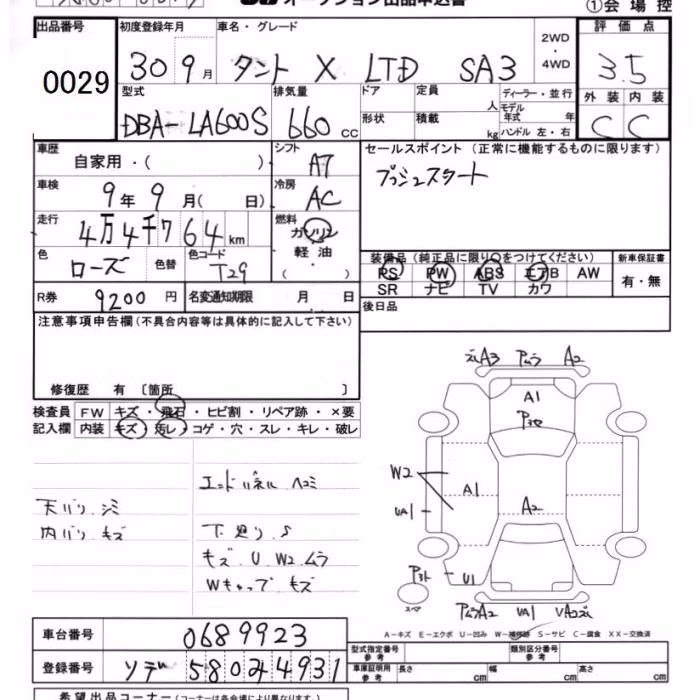 オークション出品申込書
①会場控
出品番号 初度登録年月 車名・グレード 評価点
0029 30 9月 タント X LTD SA3 2WD・4WD 3.5
型式 排気量 ドア 定員 人 ディーラー・並行 外装 内装
DBA-LA600S 660cc 形状 積載 kg モデル年式 年 ハンドル 左・右 C C
車歴 自家用・( ) シフト A7 セールスポイント (正常に機能するものに限ります)
車検 9年9月( 日) 冷房 AC プッシュスタート
走行 4万4千764km 燃料 ガソリン 軽油 ( ・ )
色 ローズ 色替 色コード T29 装備品 (純正品に限り○をつけてください) 新車保証書
PS PW ABS エアB AW 有・無
SR ナビ TV カワ
R券 9200円 名変通知期限 月 日 後日品
注意事項申告欄(不具合内容等は具体的に記入して下さい)
修復歴 有 〔箇所 〕
検査員 FW キズ・飛石・ヒビ割・リペア跡・×要
記入欄 内装 キズ・汚レ・コゲ・穴・スレ・キレ・破レ
エンドパネル ヘコミ
天バリ シミ
内バリ キズ 下廻り S
キズ U W2 ムラ
Wキャップ キズ
A3 A2
A1
W2
A1 A2
UA1
U1
スペア
A2 UA1
A-キズ E-エクボ U-凹み W-補修跡 S-サビ C-腐食 XX-交換済
車台番号 0689923 型式指定番号 参考 類別区分番号 参考
登録番号 ソデ 580 4931 車庫証明用 参考 長さ cm 幅 cm 高さ cm
希望出品コーナー (コーナーは各会場により異なります。)